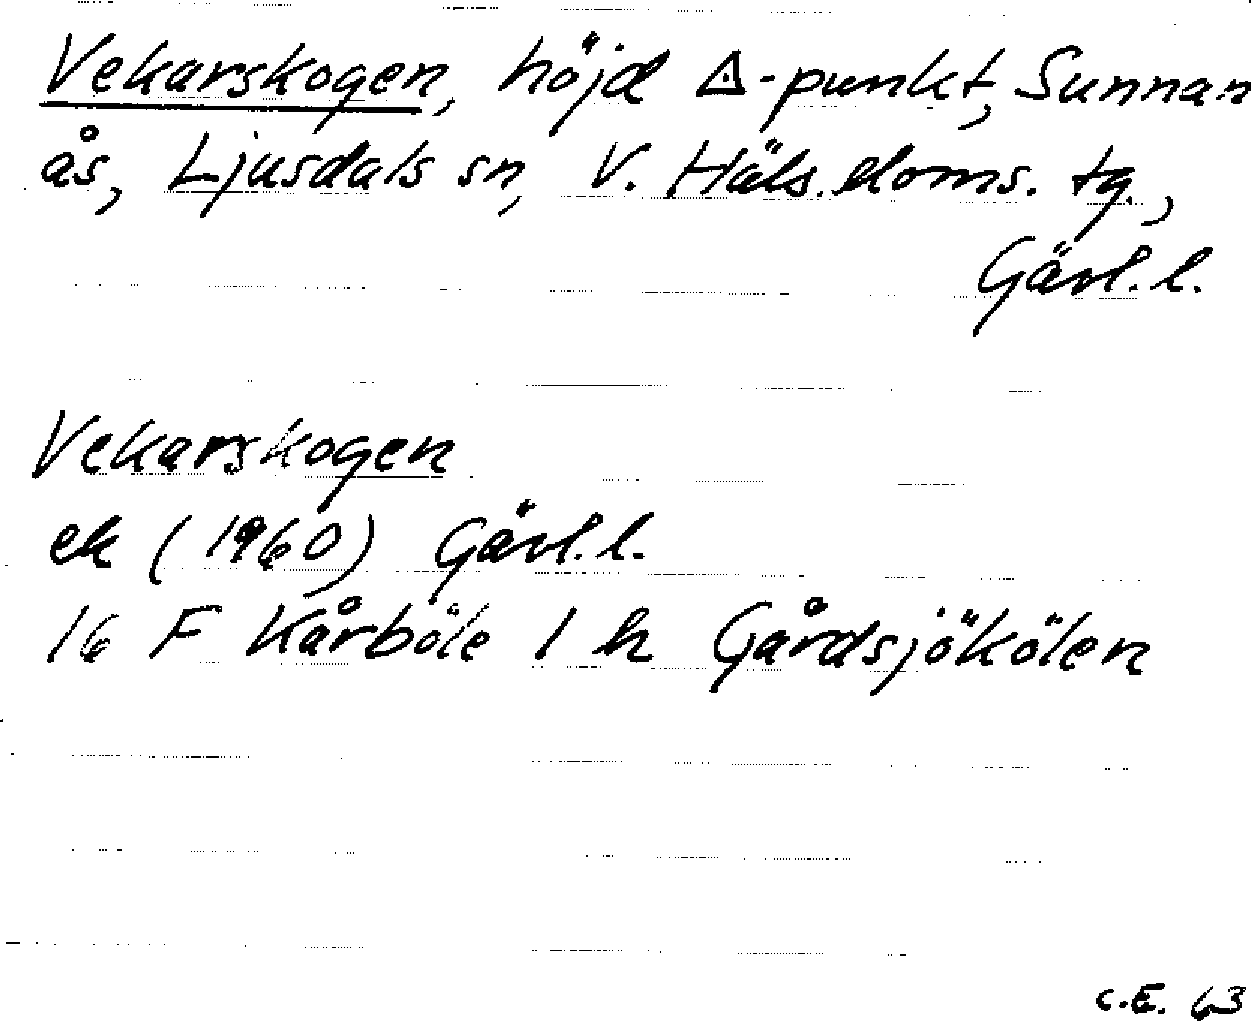 Vekarskogen, höjd △-punkt, Sunnan
ås, Ljusdals sn, V. Häls. doms. tg.,
Gävl. l.
Vekarskogen
ek (1960) Gävl. l.
16 F Kårböle 1 h Gårdsjökölen
C.E. 63